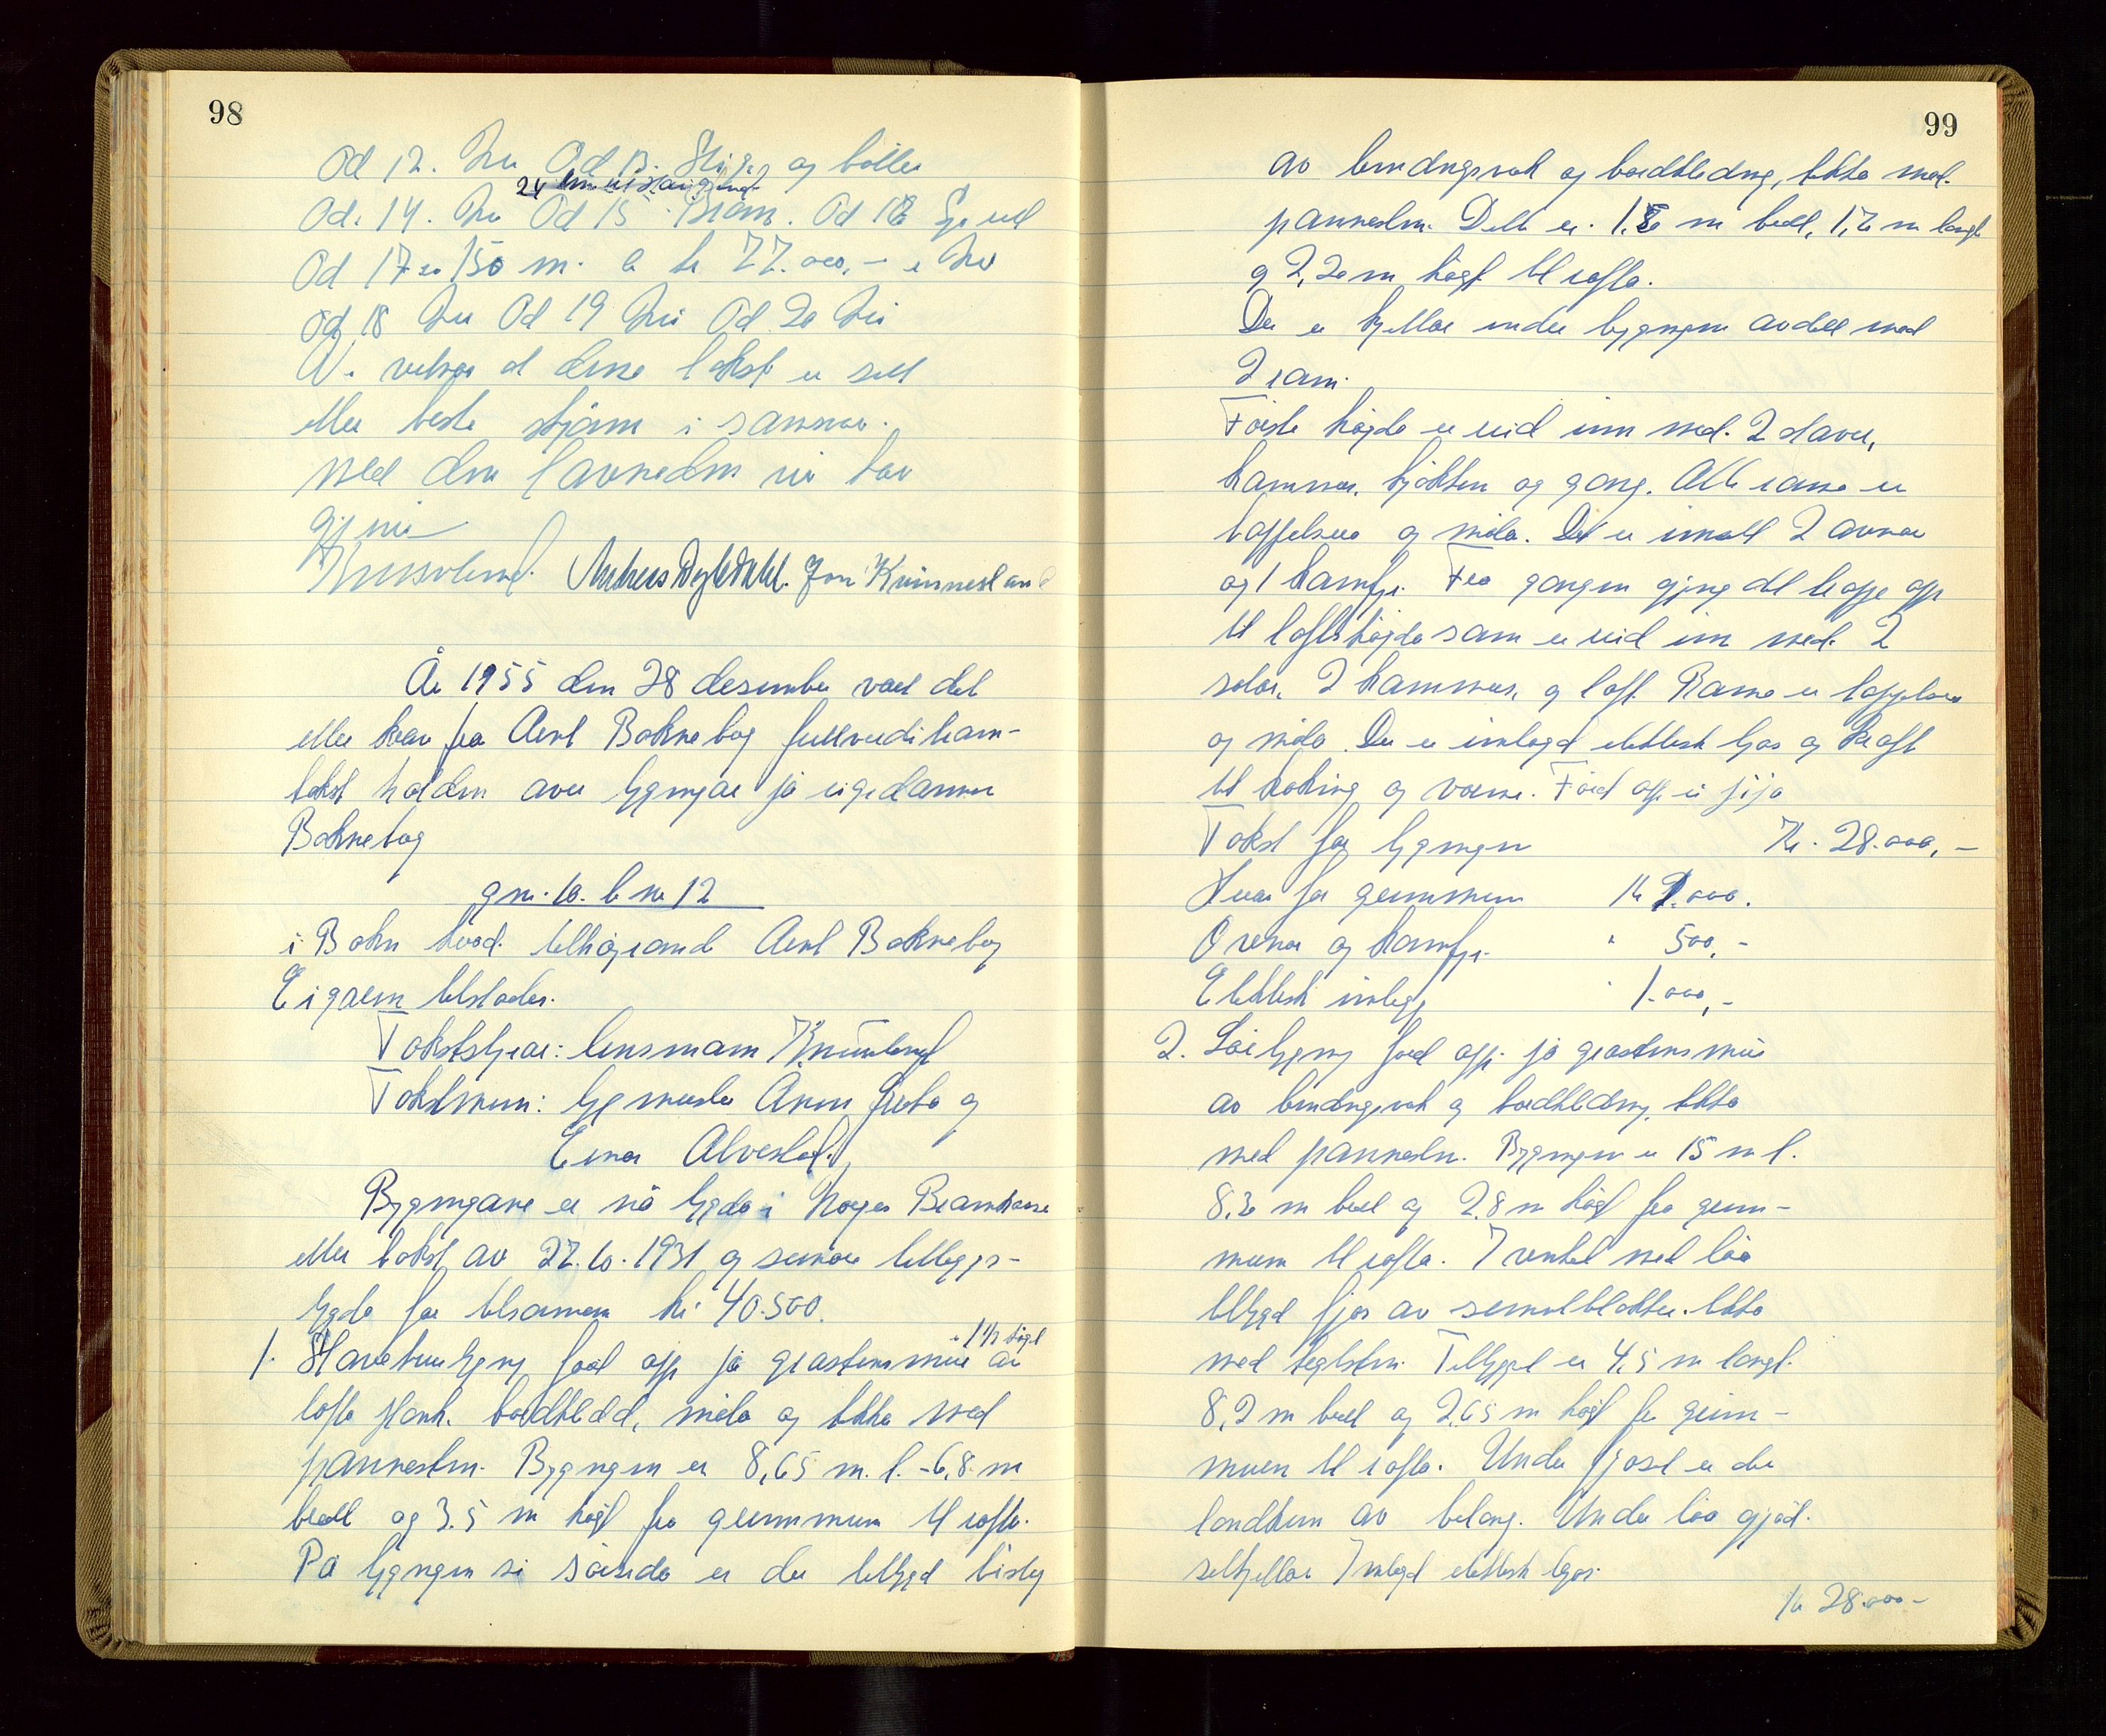 98
Od 12. Nei Od 13. Stige og bøtter
24 km
Od. 14. Nei Od 15 Brann. Od 16 Ja ved
Od 17 150 m. kr 22.000,- Nei
Od 18 Nei Od 19 Nei Od 20 Nei
Vi vitnar at denne takst er sett
etter beste skjøn i samsvar
med den lovnaden vi har
gjeve
Andreas Jon Kvinnesland
År 1955 den 28 desember vart det
etter krav frå Arnt Boknebog fullverdi brann-
takst halden over bygningar på eigedommen
Boknebog
gnr. 10. bnr 12
i Bokn herad. tilhøyrande Arnt Boknebog
Eigaren tilstades.
Takststyrar: lensmann
Takstmenn: byggmeister og
Einar Alvestad.
Bygningane er nå trygda i Norges Brannkasse
etter takst av 27.10.1931 og seinare tilleggs-
trygda for tilsaman kr 40.500.
1 1/2 høgd
1. Stovehusbygning ført opp på gråsteinsmur av
lofta plank. bordkledd, måla og tekka med
pannestein. Bygningen er 8,65 m. l. - 6,8 m
breidd og 3.5 m høgt frå grunnmuren til rafta.
På bygningen si søreside er der tilbygd bislag
99
av bindingsverk og bordkledning, tekka med
pannestein. Dette er 1,80 m breidd, 1,70 m langt
og 2,20 m høgt til rafta.
Der er kjellar under bygningen avdelt med
2 rom.
Første høgda er reid inn med 2 stover,
kammer, kjøkken og gang. Alle romma er
og måla. Det er innsatt 2 omnar
og 1 komfyr. Frå gangen gjeng det trapp opp
til loftshøgda som er reid inn med 2
salar, 2 kammer, og loft. Romma er
og måla. Der er innlagd elektrisk ljos og kraft
til koking og varme. Ført opp i pipa
Takst for bygningen Kr. 28.000,-
Herav for grunnmuren kr 1.000.
Omnar og komfyr. " 500,-
Elektrisk innlegg " 1.000,-
2. Løebygning ført opp på gråsteinsmur
av bindingsverk og bordkledning, tekka
med pannestein. Bygningen er 15 m l.
8.20 m breidd og 2.8 m høgt frå grunn-
muren til rafta. I vinkel med løa
tilbygd fjøs av sementblokker. tekka
med teglstein. Tilbygget er 4,5 m langt.
8,2 m breidd og 2,65 m høgt frå grunn-
muren til rafta. Under fjøset er der
landkum av betong. Under løa gjød-
selkjellar. Innlagd elektrisk ljos.
kr 28.000-